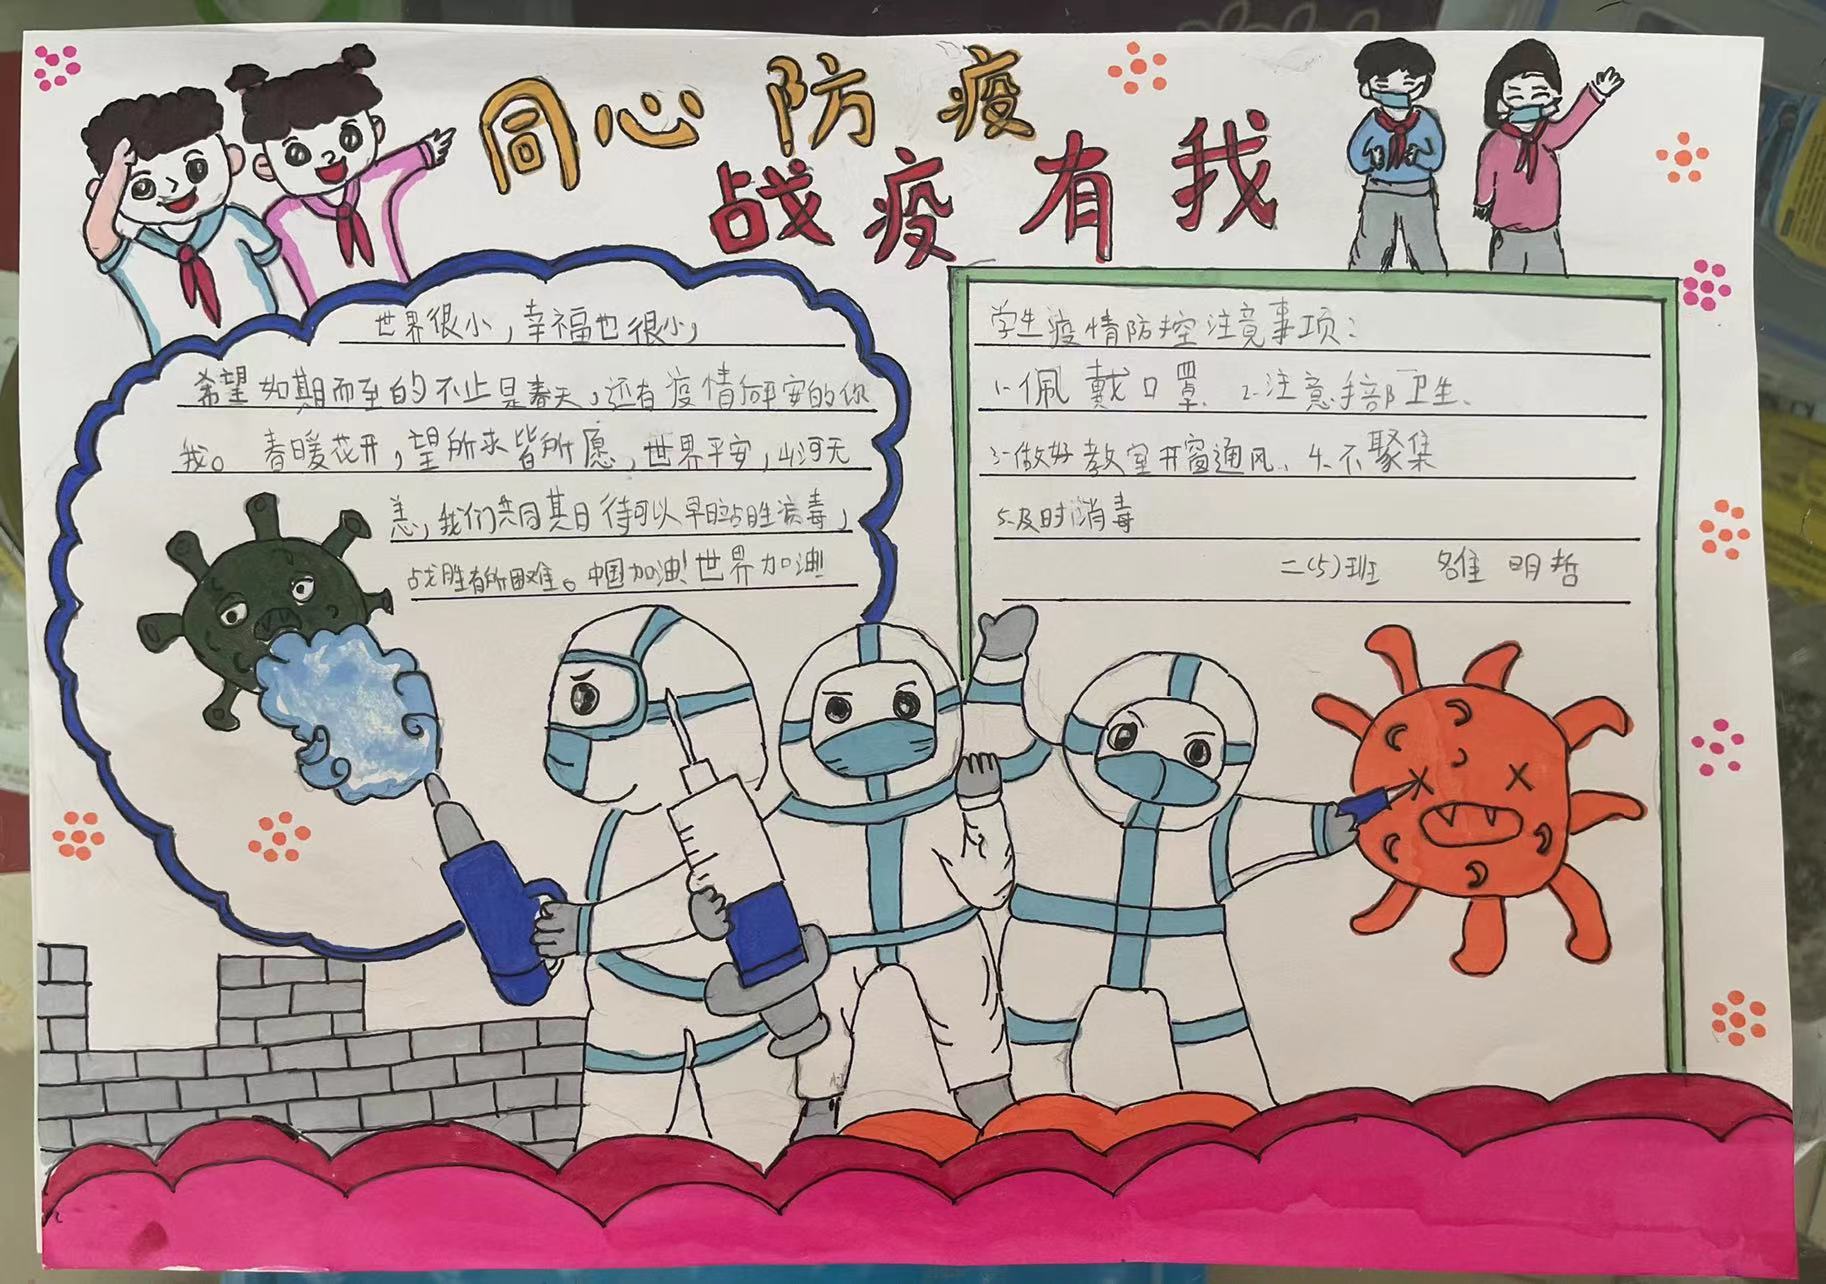 同心防疫
战疫有我
世界很小,幸福也很小,
希望如期而至的不止是春天,还有疫情后平安的你
我。春暖花开,望所求皆所愿,世界平安,山河无
恙,我们共同其日待可以早日战胜病毒,
战胜有所困难。中国加油!世界加油!
学生疫情防控注意事项:
1.佩戴口罩、2.注意手部卫生、
3.做好教室开窗通风、4.不聚集
5.及时消毒
二(5)班 明哲